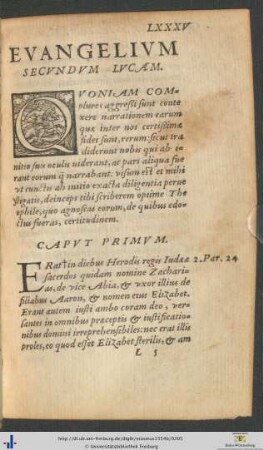 LXXXV
EVANGELIVM
SECVNDVM LVCAM.
QVONIAM COM-
plures aggreßi sunt conte
xere narrationem earum
que inter nos certißimæ
fidei sunt, rerum: sicut tra
diderunt nobis qui ab i-
nitio suis oculis uiderant, ac pars aliqua fue
rant eorum q narrabant. uisum est et mihi
ut cunctis ab initio exacta diligentia perue
stigatis, deinceps tibi scriberem optime The
ophile, quo agnoscas eorum, de quibus edo-
ctus fueras, certitudinem.
CAPVT PRIMVM.
ERat in diebus Herodis regis Iudeæ 2. Par. 24
sacerdos quidam nomine Zachari-
as, de uice Abia. & uxor illius de
filiabus Aaron, & nomen eius Elizabet.
Erant autem iusti ambo coram deo, uer-
santes in omnibus præceptis & iustificatio-
nibus domini irreprehensibiles: nec erat illis
proles, eo quod esset Elizabet sterilis, & am
L 5
© Universitätsbibliothek Freiburg